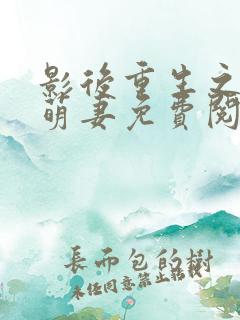 影後重生之
萌妻免費閱
長而包的樹
未任同意禁止轉載